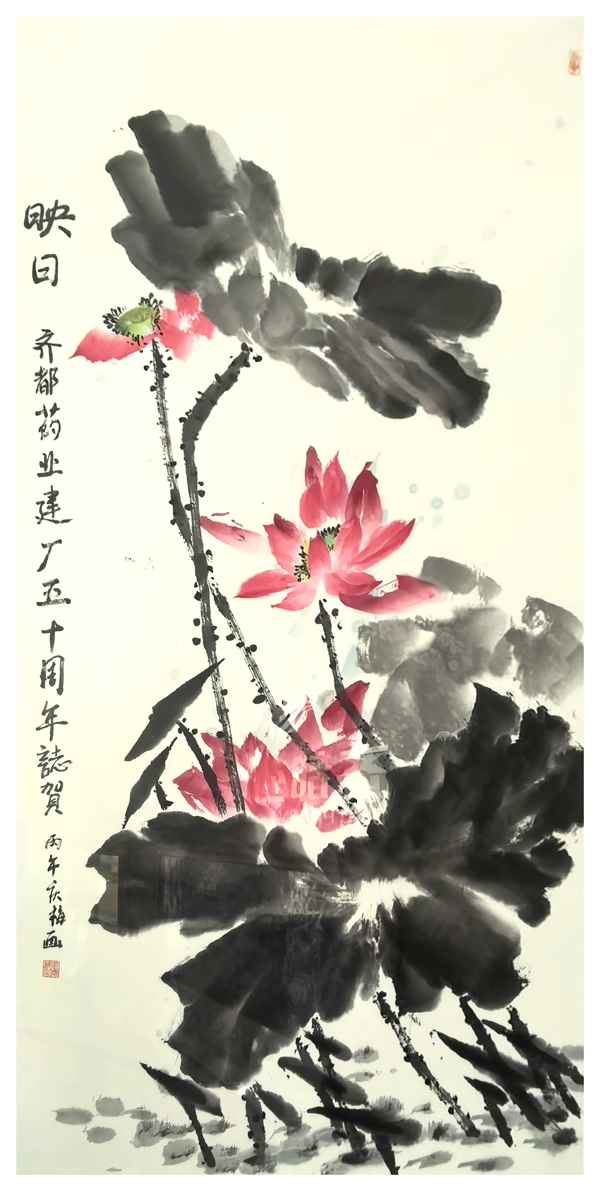 映日
齐都药业建厂五十周年誌贺
丙午庆梅画